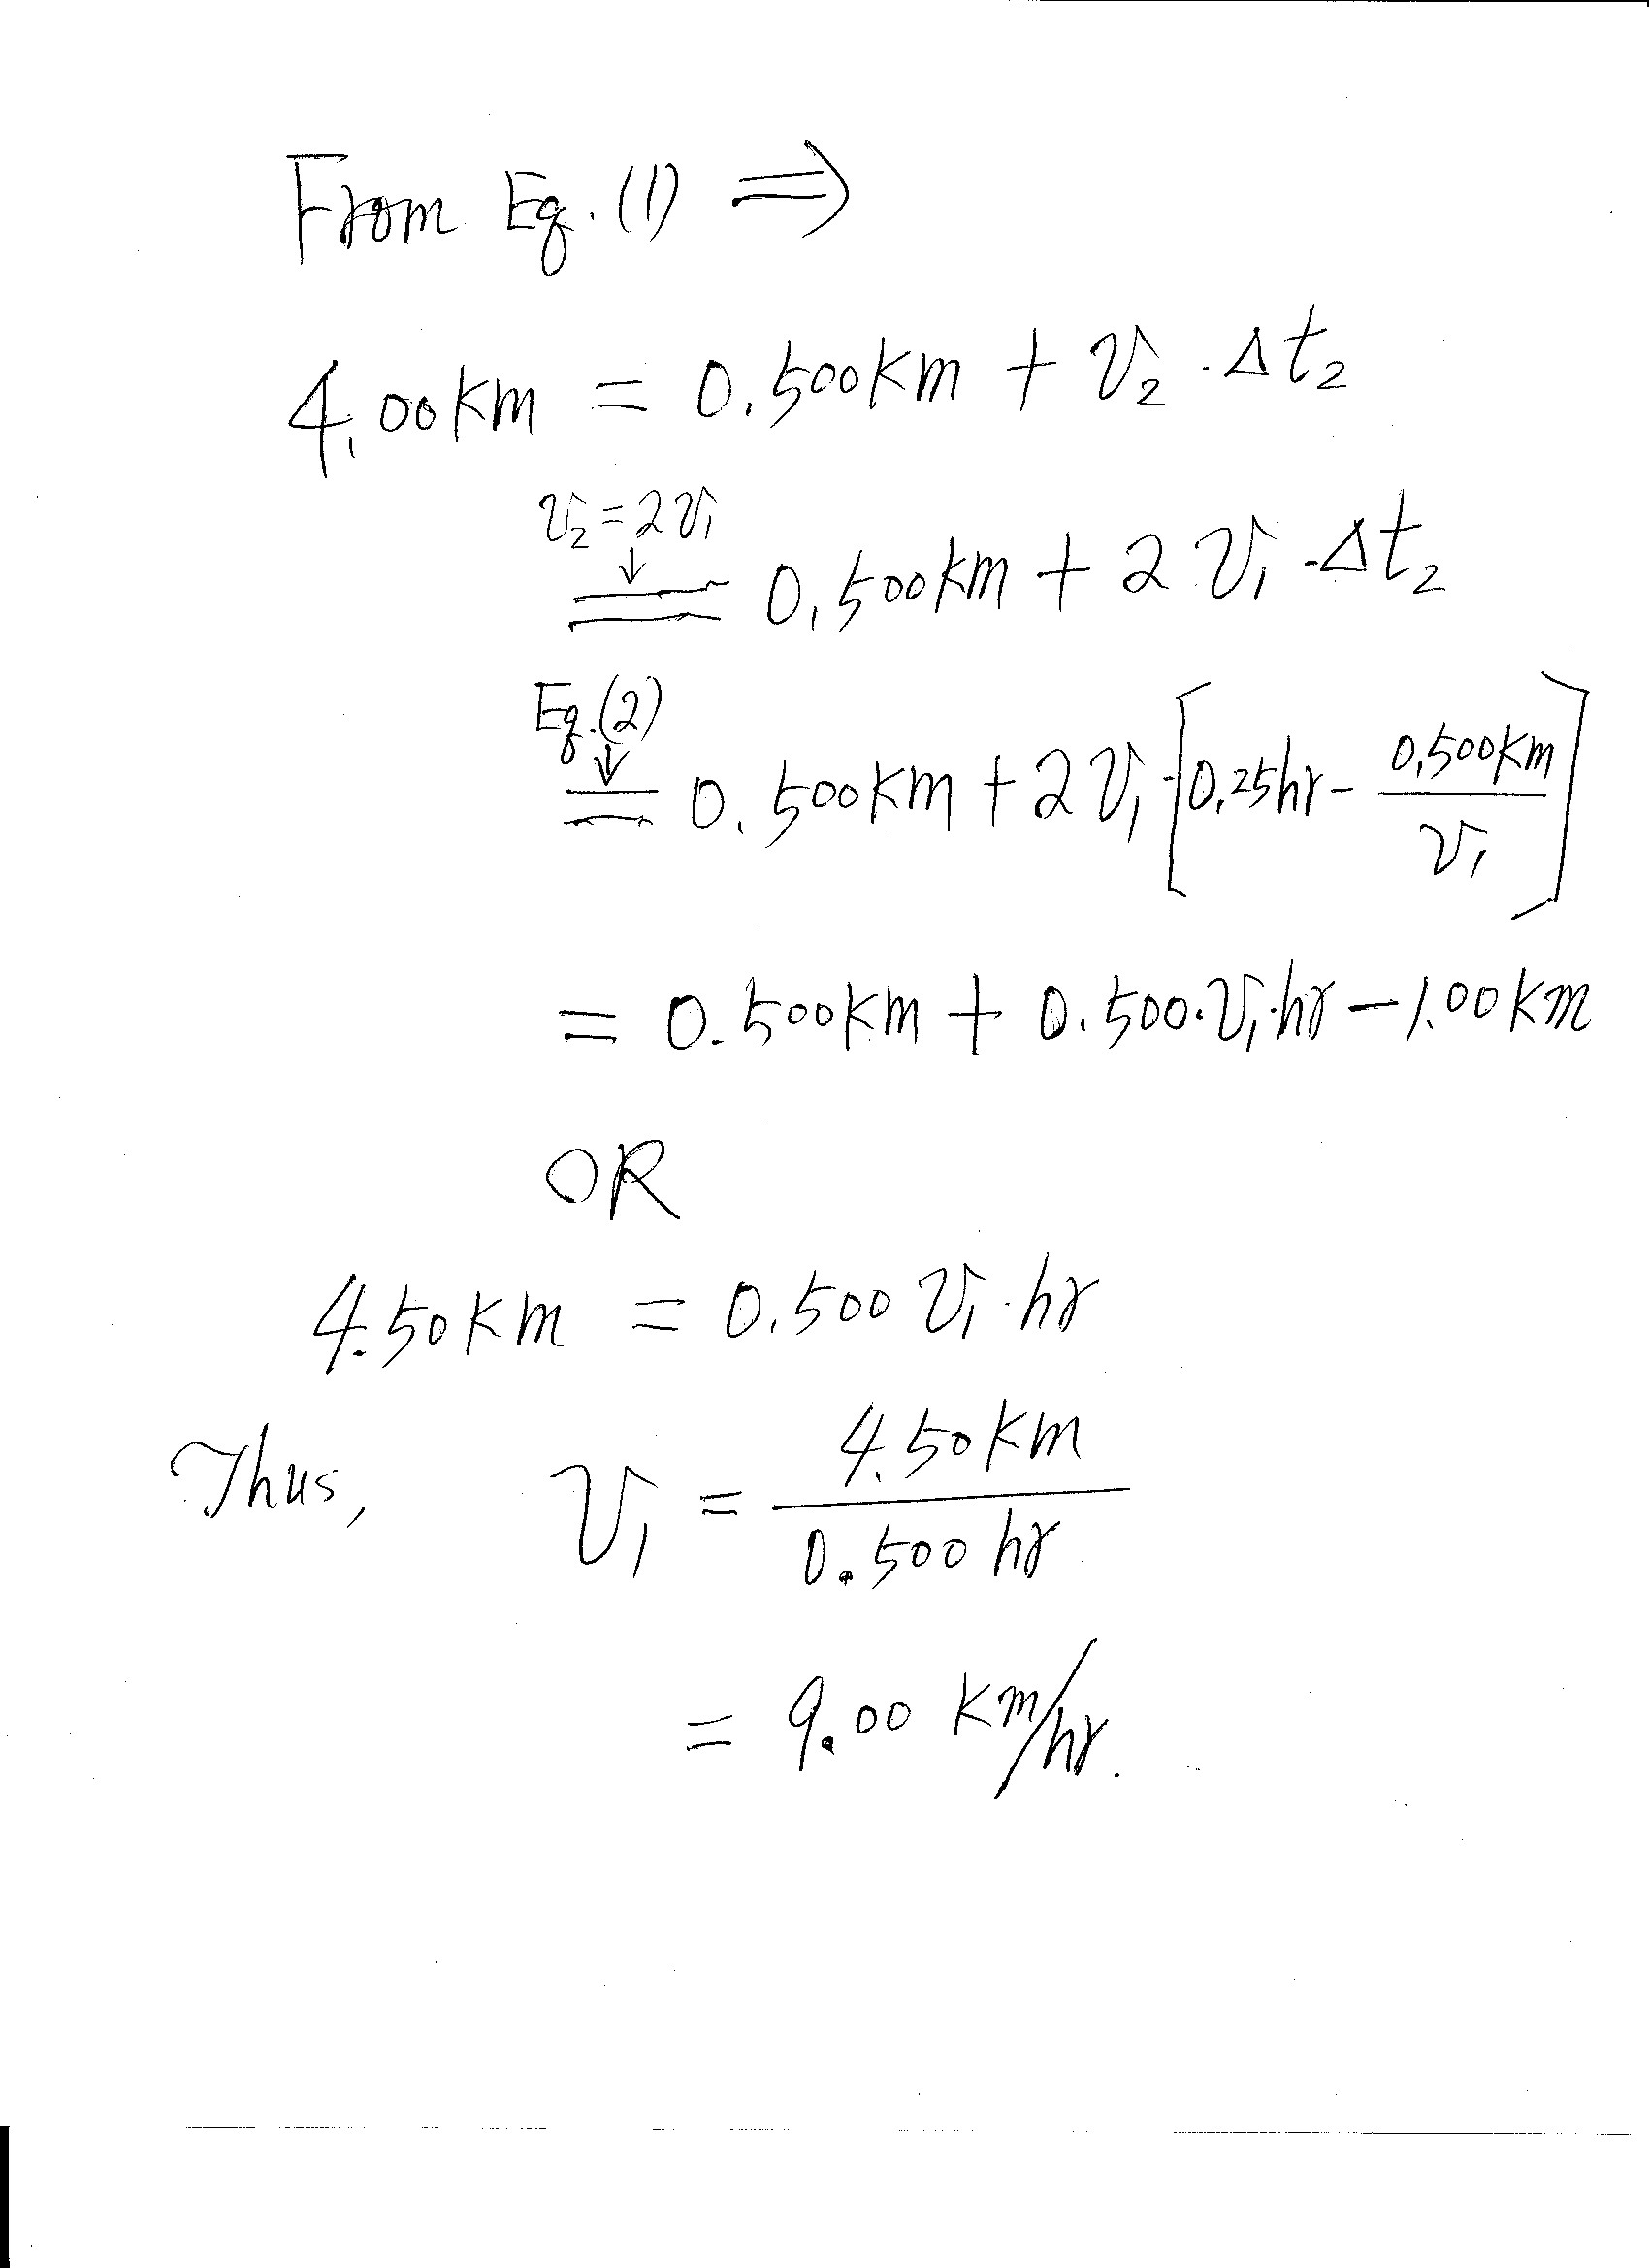 From Eq.(1) ⇒
4.00km = 0.500km + v₂·Δt₂
v₂=2v₁
↓
= 0.500km + 2v₁·Δt₂
Eq.(2)
↓
= 0.500km + 2v₁·[0.25hr - 0.500km/v₁]
= 0.500km + 0.500·v₁·hr - 1.00km
OR
4.50km = 0.500v₁·hr
Thus, v₁ = 4.50km/0.500hr
= 9.00 km/hr.